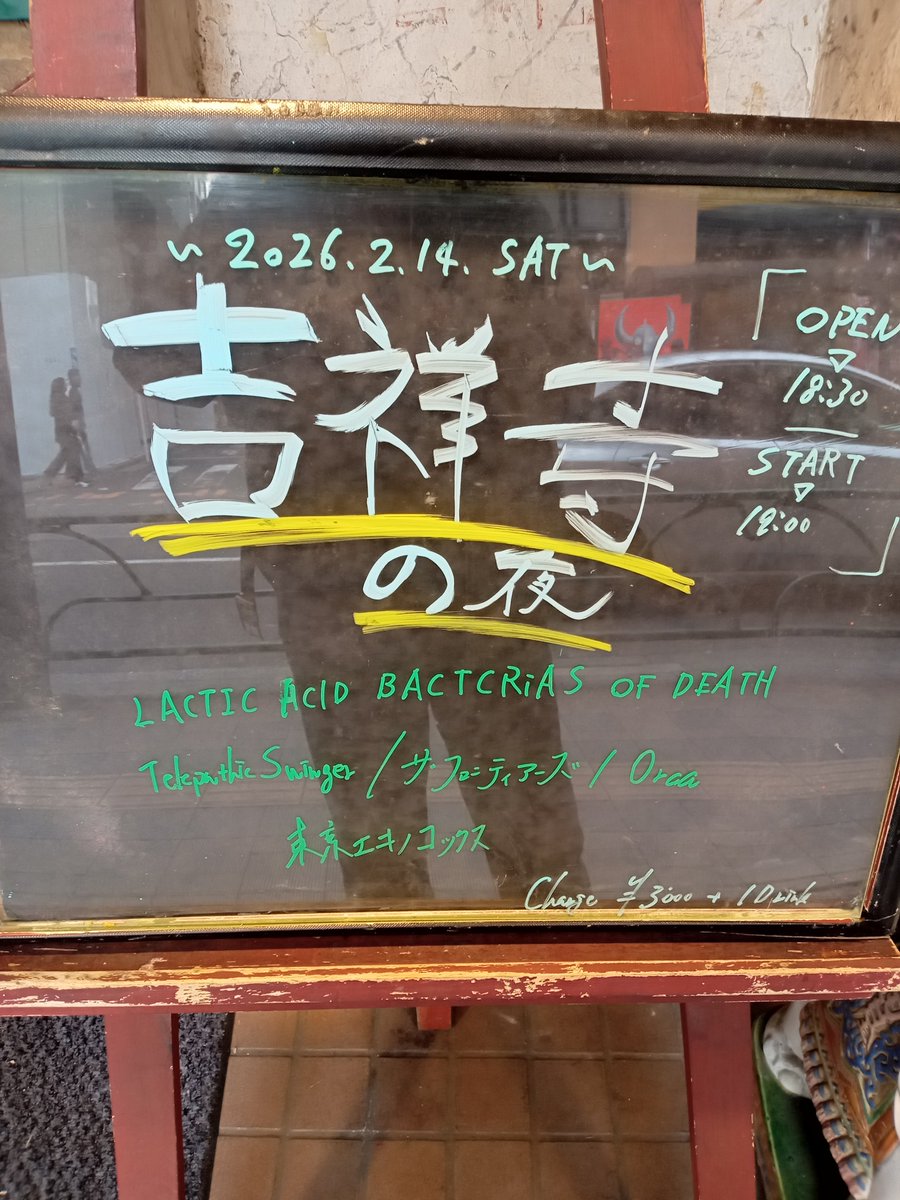 ~2026.2.14. SAT~
吉祥寺
の夜
「OPEN
▽
18:30
START
▽
19:00」
LACTIC ACID BACTERIAS OF DEATH
Telepathic Swinger / ザ・フロンティアーズ / Orca
東京エキノコックス
Charge ¥3000 + 1 Drink